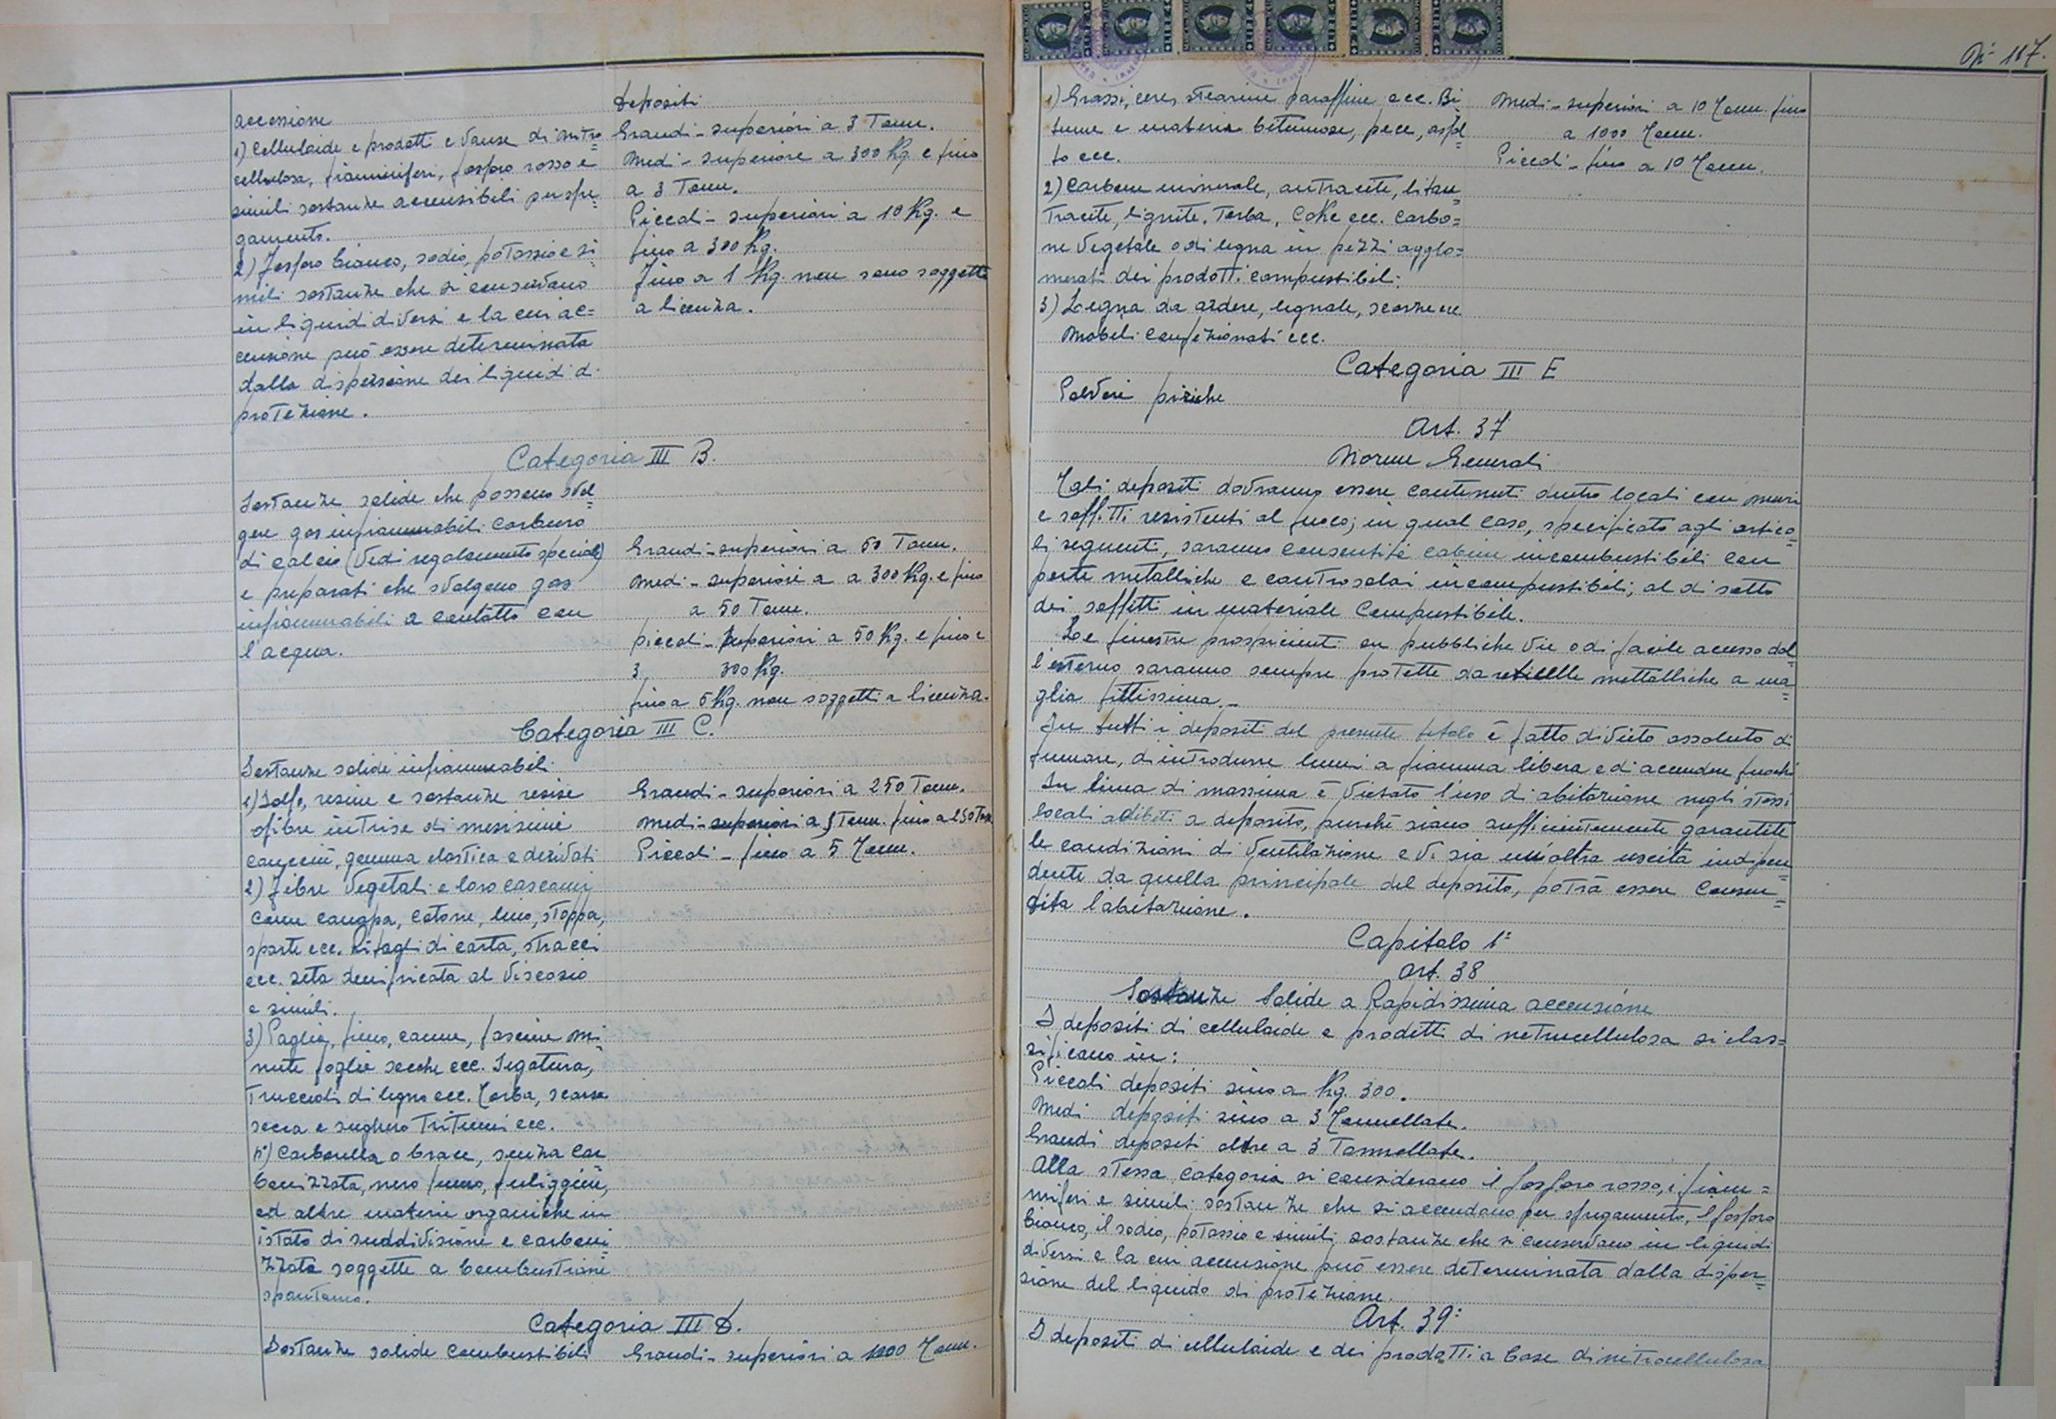 accensione
1) Celluloide e prodotti e Vause di nitro
cellulosa, fiammiferi, fosforo rosso e
simili sostanze accensibili per sfre=
gamento.
2) Fosforo bianco, sodio, potassio e si=
mili sostanze che si conservano
in liquidi diversi e la cui ac=
censione può essere determinata
dalla dispersione dei liquidi di
protezione.
depositi
Grandi - superiori a 3 Tonn.
Medi - superiore a 300 Kg. e fino
a 3 Tonn.
Piccoli - superiori a 10 Kg. e
fino a 300 Kg.
Fino a 1 Kg. non sono soggetti
a licenza.
Categoria III B.
Sostanze solide che possono svol=
gere gas infiammabili carburo
di calcio (Vedi regolamento speciale)
e preparati che svolgono gas
infiammabili a contatto con
l'acqua.
Grandi - superiori a 50 Tonn.
Medi - superiori a a 300 Kg. e fino
a 50 Tonn.
piccoli - superiori a 50 Kg. e fino a
3 300 Kg.
fino a 5 Kg. non soggetti a licenza.
Categoria III C.
Sostanze solide infiammabili
1) Solfo, resine e sostanze
o fibre intrise di
gomma elastica e derivati
2) Fibre Vegetali e loro cascami
come canapa, cotone, lino, stoppa,
sparte ecc. ritagli di carta, stracci
ecc. seta al viscosio
e simili.
3) Paglia, fieno, canne, fascine mi=
nute foglie secche ecc. Segatura,
Truccioli di legno ecc. Torba, scorsa
secca e sughero Tritumi ecc.
4) Carbonella o brace, senza car
bonizzata, nero fumo, fuliggine,
ed altre materie organiche in
istato di suddivisione e carboni=
zzata soggette a combustione
spontanea.
Grandi - superiori a 250 Tonn.
Medi - superiori a 5 Tonn. fino a 250 Tonn
Piccoli - fino a 5 Tonn.
Categoria III D.
Sostanze solide combustibili
Grandi - superiori a 1000 Tonn.
187.
1) Grassi, cere, stearine paraffine ecc. Bi
tume e materia bituminose, pece, asfal
to ecc.
2) Carbone minerale, antracite, litan=
Tracite, lignite, Torba, Coke ecc. Carbo=
ne Vegetale o di legna in pezzi agglo=
merati dei prodotti compustibili.
3) Legna da ardere, legnale, scorze ecc.
Mobili confezionati ecc.
Medi - superiori a 10 Tonn. fino
a 1000 Tonn.
Piccoli - fino a 10 Tonn.
Categoria III E
Polveri piriche
Art. 37
Norme Generali
Tali depositi dovranno essere contenuti dentro locali con muri
e soffitti resistenti al fuoco; in qual caso, specificato agli artico=
li seguenti, saranno consentite cabine incombustibili con
porte metalliche e controsolai incompustibili, al di sotto
dei soffitti in materiale compustibile.
Le finestre prospicienti su pubbliche vie o di facile accesso dal=
l'esterno saranno sempre protette da reticelle mettalliche a ma=
glia fittissima.-
In tutti i depositi del presente titolo è fatto divieto assoluto di
fumare, di introdurre lumi a fiamma libera e di accendere fuochi
In linea di massima è vietato l'uso di abitazione negli stessi
locali adibiti a deposito, purché siano sufficientemente garantite
le condizioni di Ventilazione e vi sia un'altra uscita indipen=
dente da quella principale del deposito, potrà essere consen=
tita l'abitazione.
Capitolo 1°
Art. 38
Sostanze Solide a Rapidissima accensione
I depositi di celluloide e prodotti di netrocellulosa si clas=
sificano in:
Piccoli depositi sino a Kg. 300.
Medi depositi sino a 3 Tonnellate.
Grandi depositi oltre a 3 Tonnellate.
Alla stessa categoria si considerano il fosforo rosso, i fiam=
miferi e simili sostanze che si accendano per sfregamento, il fosforo
bianco, il sodio, potassio e simili sostanze che si conservano in liquidi
diversi e la cui accensione può essere determinata dalla disper=
sione del liquido di protezione.
Art. 39°
I depositi di celluloide e dei prodotti a base di nitrocellulosa